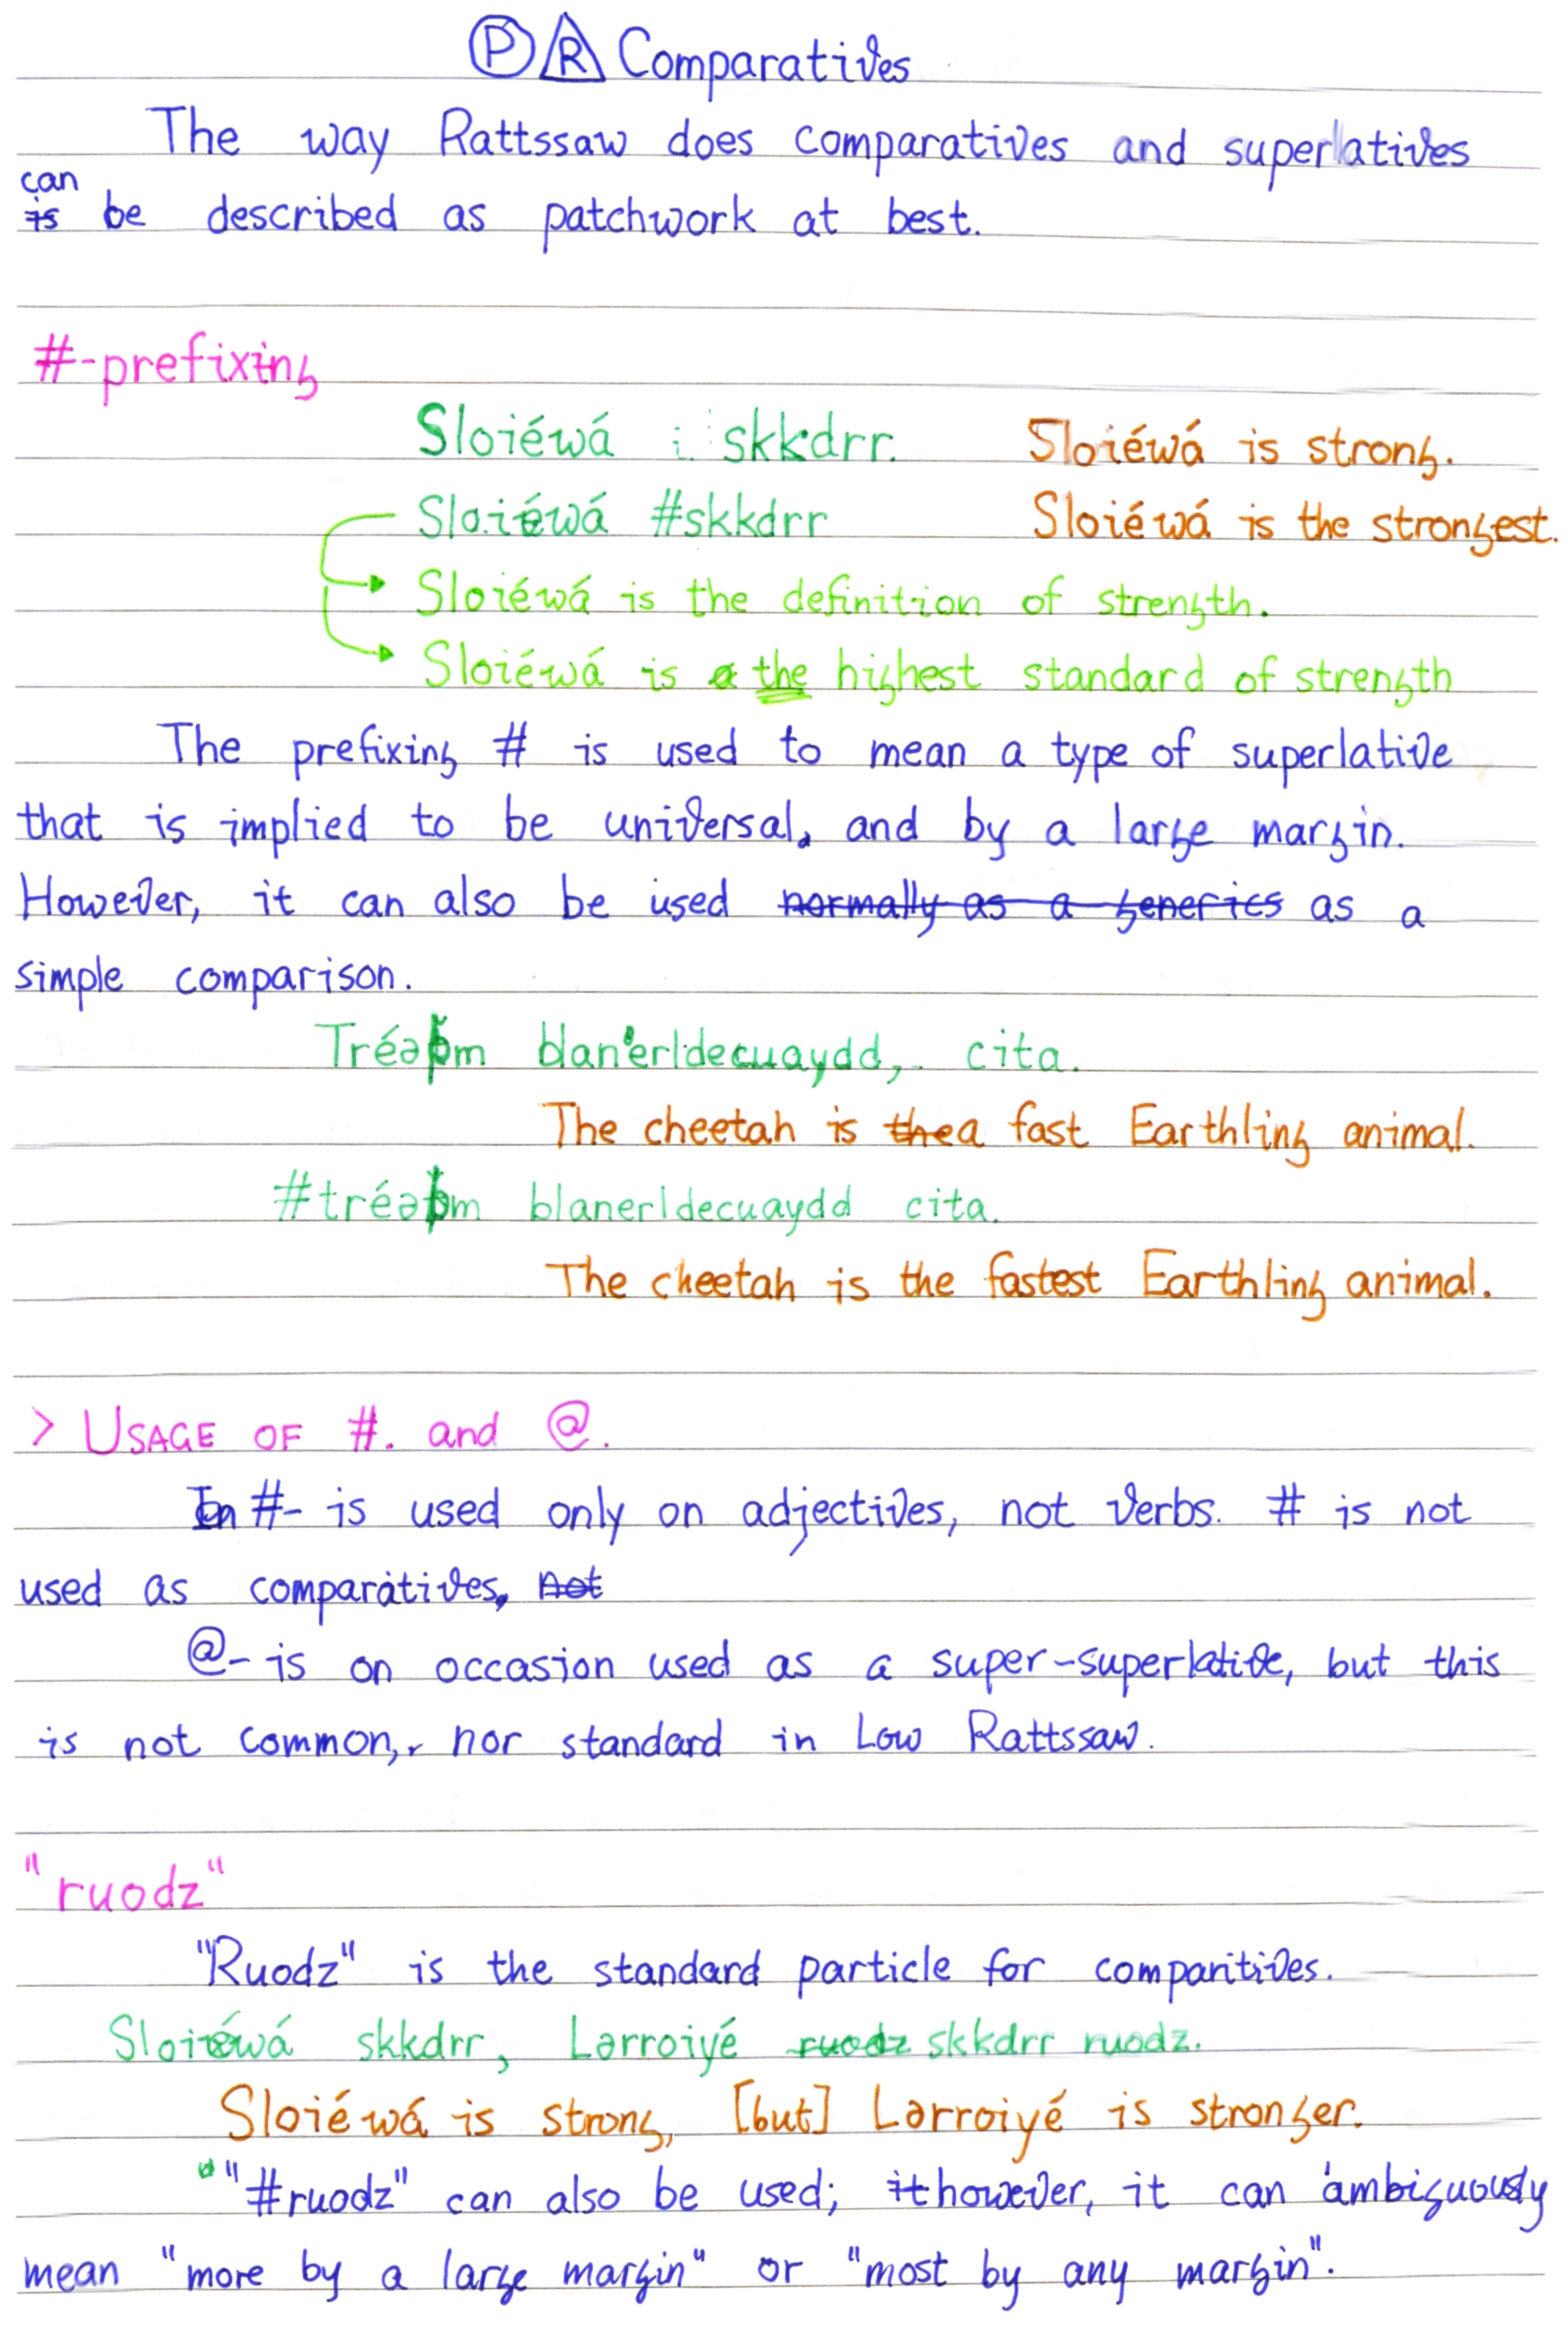 Ⓟ R Comparatives
The way Rattssaw does comparatives and superlatives
can
is be described as patchwork at best.
#-prefixing
Sloiéwá skkdrr. Sloiéwá is strong.
Sloiéwá #skkdrr Sloiéwá is the strongest.
Sloiéwá is the definition of strength.
Sloiéwá is a the highest standard of strength
The prefixing # is used to mean a type of superlative
that is implied to be universal, and by a large margin.
However, it can also be used normally as a generics as a
simple comparison.
blanerldecuaydd, cita.
The cheetah is the a fast Earthling animal.
blanerldecuaydd cita.
The cheetah is the fastest Earthling animal.
> USAGE OF #. and @.
In #- is used only on adjectives, not verbs. # is not
used as comparatives, not
@- is on occasion used as a super-superlative, but this
is not common, nor standard in Low Rattssaw.
"ruodz"
"Ruodz" is the standard particle for comparitives.
Sloiéwá skkdrr, Lərroiyé ruodz skkdrr ruodz.
Sloiéwá is strong, [but] Lərroiyé is stronger.
"#ruodz" can also be used; it however, it can ambiguously
mean "more by a large margin" or "most by any margin".